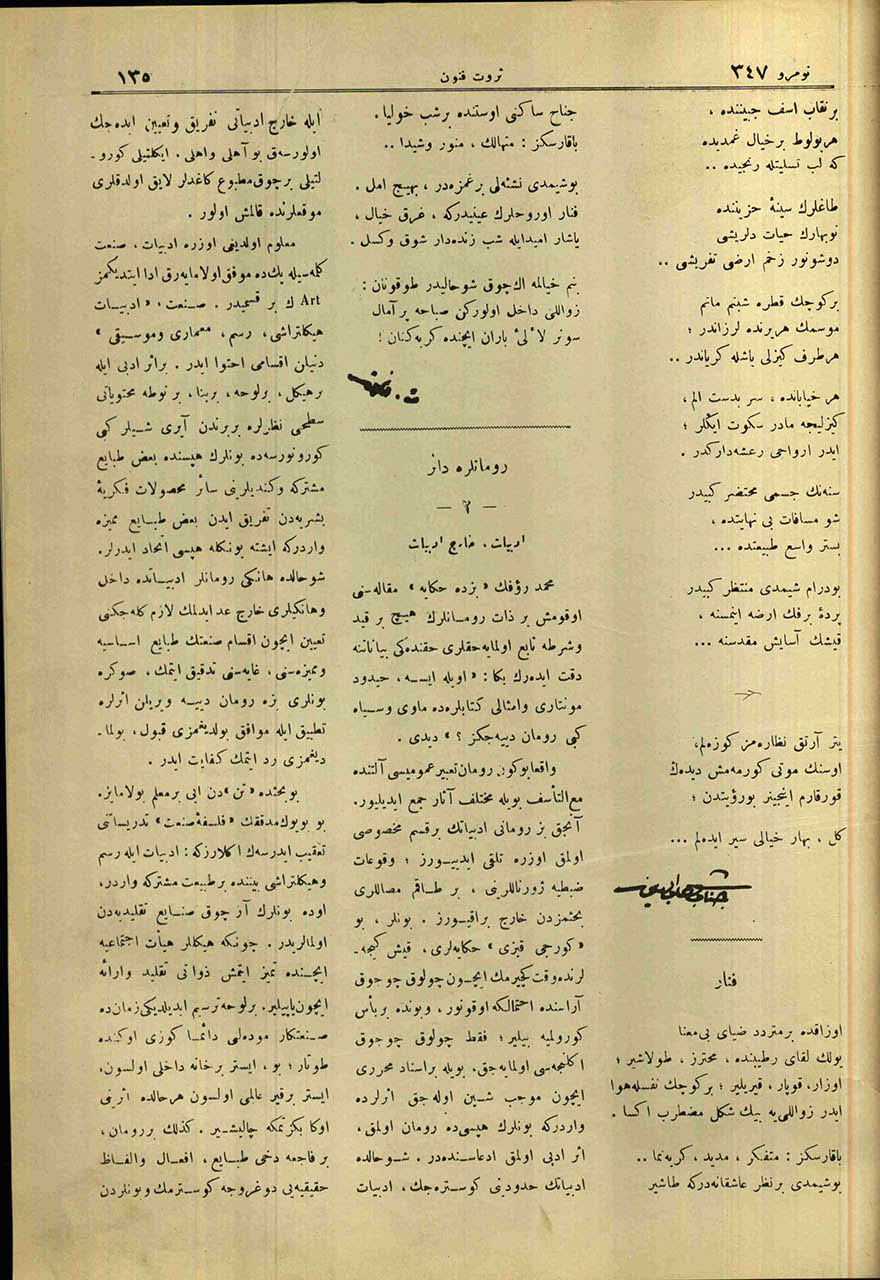 نومرو ٣٤٧
ثروت فنون
١٣٥
بر نقاب اسف جبیننده ،
هر بولوط بر خیال غمدیده
که لب تسلیتله رنجیده ..
طاغلرك سینهٔ حزیننده
نوبهارك حیات دلریشی
دوشونور زخم ارضی تفریشی ..
بر کوچك قطره شبنم ماتم
موسمك هر یرنده لرزاندر ؛
هر طرف کیزلی یاشله کریاندر ..
هر خیابانده ، سر بدست الم ،
کیزلیجه مادر سکوت ایکلر ؛
ایدر ارواحی رعشه‌دار کدر .
سنه‌نك جسمی محتضر کبیدر
شو مسافات بی نهایتده ،
بستر واسع طبیعتده ...
بودرام شیمدی منتظر کبیدر
پردهٔ برفك ارضه اینمسنه ،
قیشك آسایش مقدسنه ...
یتر آرتق نظاره‌مز کوزه‌لم،
اوسنك موتی کورمه‌مش دیده‌ك
قورقارم اینجینر بورؤیتدن ؛
کل ، بهار خیالی سیر ایده‌لم ...
جناب شهاب‌الدین
فنار
اوزاقده بر متردد ضیای بی‌معنا
یولك لقای رطیبنده ، محترز ، طولاشیر ؛
اوزار، قوپار ، قیریلیر ؛ بر کوچك نفسله هوا
ایدر زواللی‌یه بیك شکل مضطرب اکسا .
باقارسکز : متفکر ، مدید ، کریه‌نما ..
بوشیمدی بر نظر عاشقانه‌درکه طاشیر
جناح ساکنی اوستنده بر شب خولیا .
باقارسکز : متهالك ، منور وشیدا ..
بوشیمدی نشئه‌لی بر غمزه‌در ، بهیج امل .
فنار اوروحلرك عینیدرکه ، غرق خیال ،
یاشار امیدایله شب زنده‌دار شوق وکسل .
بنم خیالمه اك چوق شو حالیدر طوقونان :
زواللی داخل اولورکن صباحه پر آمال
سونر لآلئ باران ایچنده کریه‌کنان !
رومانلره دائر
— ٢ —
ادبیات ، خارج ادبیات
محمد رؤفك « بزده حکایه » مقاله‌سنی
اوقومش بر ذات رومانلرك هیچ بر قید
وشرطه تابع اولمایه‌جقلری حقنده‌کی بیاناتنه
دقت ایده‌رك بکا : « اویله ایسه ، حیدود
مونتاری وامثالی کتابلره‌ده ماوی وسیاه
کبی رومان دییه‌جکز ؟ » دیدی .
واقعا بوکون رومان تعبیر عمومیسی آلتنده
مع التأسف بویله مختلف آثار جمع ایدیلیور.
آنجق بز رومانی ادبیاتك بر قسم مخصوصی
اولمق اوزره تلقی ایدییورز ؛ وقوعات
ضبطیه ژورناللرینی ، بر طاقم مصاللری
بحثمزدن خارج براقیورز . بونلر ، بو
« کورجی قیزی » حکایه‌لری ، قیش کیجه‌ـ
لرنده وقت کچیرمك ایچون چولوق چوجوق
آراسنده احتمالکه اوقونور ، وبونده بر بأس
کورولمیه بیلیر ؛ فقط چولوق چوجوق
اکلنجه‌سی اولمایه‌جق، بویله بر اسناد محرری
ایچون موجب شین اوله‌جق اثرلرده
واردرکه بونلرك هپسی‌ده رومان اولمق،
اثر ادبی اولمق ادعاسنده‌در . شو حالده
ادبیاتك حدودنی کوستره‌جك ، ادبیات
ایله خارج ادبیاتی تفریق وتعیین ایده‌جك
اولورسه‌ق بو آهلی واهلی . ایکلتیلی کوروـ
لتیلی بر چوق مطبوع کاغدلر لایق اولدقلری
موقعلرنده قالمش اولور .
معلوم اولدیغی اوزره ادبیات ، صنعت
کله‌سیله پك‌ده موفق اولامایه‌رق ادا ایتدیکمز
Art ك بر قسمیدر . صنعت، « ادبیات
هیکلتراشی، رسم ، معماری وموسیقی »
دنیلن اقسامی احتوا ایدر . بر اثر ادبی ایله
بر هیکل ، بر لوحه ، بر بنا ، بر نوطه محتویاتی
سطحی نظرلره بر برندن آیری شیلر کبی
کورونورسه‌ده بونلرك هپسنده بعض طبایع
مشترکه وکندیلرینی سائر محصولات فکریهٔ
بشریه‌دن تفریق ایدن بعض طبایع ممیزه
واردرکه ایشته بونکله هپسی اتحاد ایدرلر.
شو حالده هانکی رومانلر ادبیاتده داخل
وهانکیلری خارج عد ایدلمك لازم کله‌جکنی
تعیین ایچون اقسام صنعتك طبایع اساسیه
وممیزه‌سنی ، غایه‌سنی تدقیق ایتمك ، صوکره
بونلری بزه رومان دییه ویریلن اثرلره
تطبیق ایله موافق بولدیغمزی قبول ، بولماـ
دیغمزی رد ایتمك کفایت ایدر .
بوبحثده « تن » دن ابی بر معلم بولامایز.
بو بویوك مدققك « فلسفهٔ صنعت » تدریساتنی
تعقیب ایدرسه‌ك اکلارزکه : ادبیات ایله رسم
وهیکلتراشی بیننده بر طبیعت مشترکه واردر ،
اوده بونلرك آز چوق صنایع تقلیدیه‌دن
اولمالریدر . چونکه هیکللر هیأت اجتماعیه
ایچنده تمیز ایتمش ذواتی تقلید وارائه
ایچون یاپیلیر. بر لوحه ترسیم ایدیلدیکی زمان‌ده
صنعتکار موده‌لی دائما کوزی اوکنده
طوتار ؛ بو ، ایستر بر خانه داخلی اولسون،
ایستر بر قیر عالمی اولسون هر حالده اثرینی
اوکا بکزتمکه چالیشیر . کذلك بر رومان ،
بر فاجعه دخی طبایع ، افعال والفاظ
حقیقیه‌یی دوغروجه کوسترمك وبونلردن